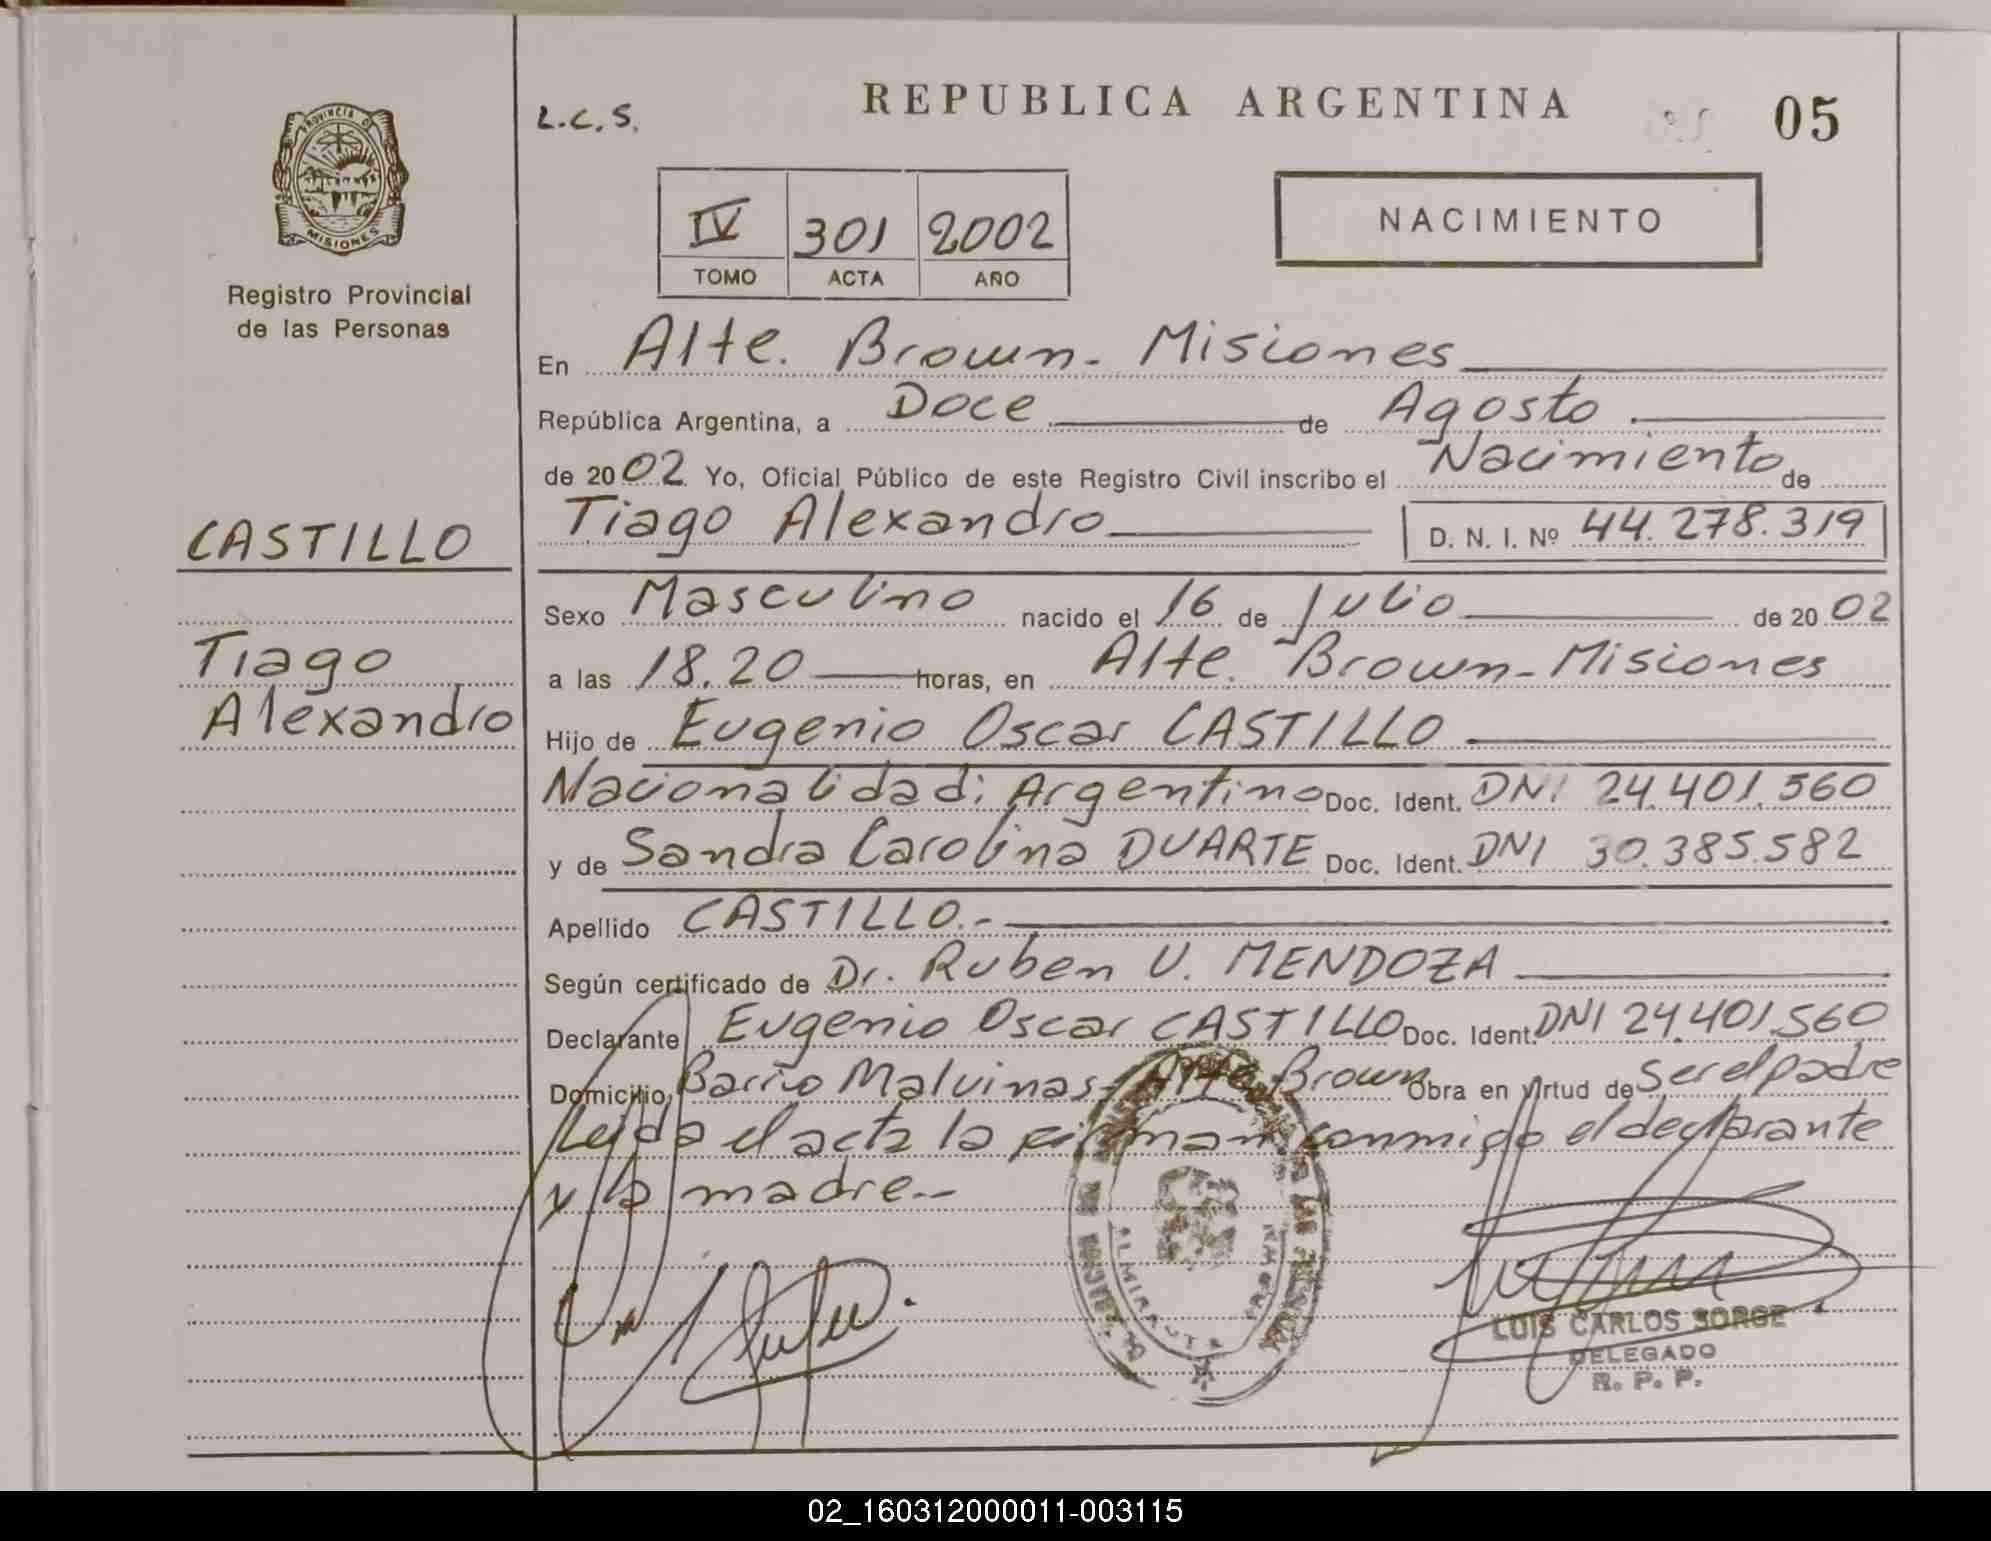 REPUBLICA ARGENTINA
05
L.C.S.
PROVINCIA DE
MISIONES
Registro Provincial
de las Personas
IV 301 2002
TOMO ACTA AÑO
NACIMIENTO
En Alte. Brown - Misiones
República Argentina, a Doce de Agosto
de 2002 Yo, Oficial Público de este Registro Civil inscribo el Nacimiento de
Tiago Alexandro D. N. I. Nº 44.278.319
CASTILLO
Sexo Masculino nacido el 16 de Julio de 2002
Tiago
a las 18.20 horas, en Alte. Brown - Misiones
Alexandro
Hijo de Eugenio Oscar CASTILLO
Nacionalidad: Argentino Doc. Ident. DNI 24.401.560
y de Sandra Carolina DUARTE Doc. Ident. DNI 30.385.582
Apellido CASTILLO.-
Según certificado de Dr. Ruben U. MENDOZA
Declarante Eugenio Oscar CASTILLO Doc. Ident. DNI 24.401.560
Domicilio Barrio Malvinas - Alte. Brown Obra en virtud de Ser el padre
Leida el acta la firman conmigo el declarante
y la madre.--
ALMIRANTE
LUIS CARLOS SORGE
DELEGADO
R. P. P.
02_160312000011-003115